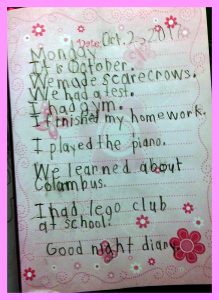 Date: Oct. 2, 201
Monday
It is October.
We made scarecrows.
We had a test.
I had gym.
I finished my homework.
I played the piano.
We learned about
Colambus.
I had lego club
at school.
Good night diary